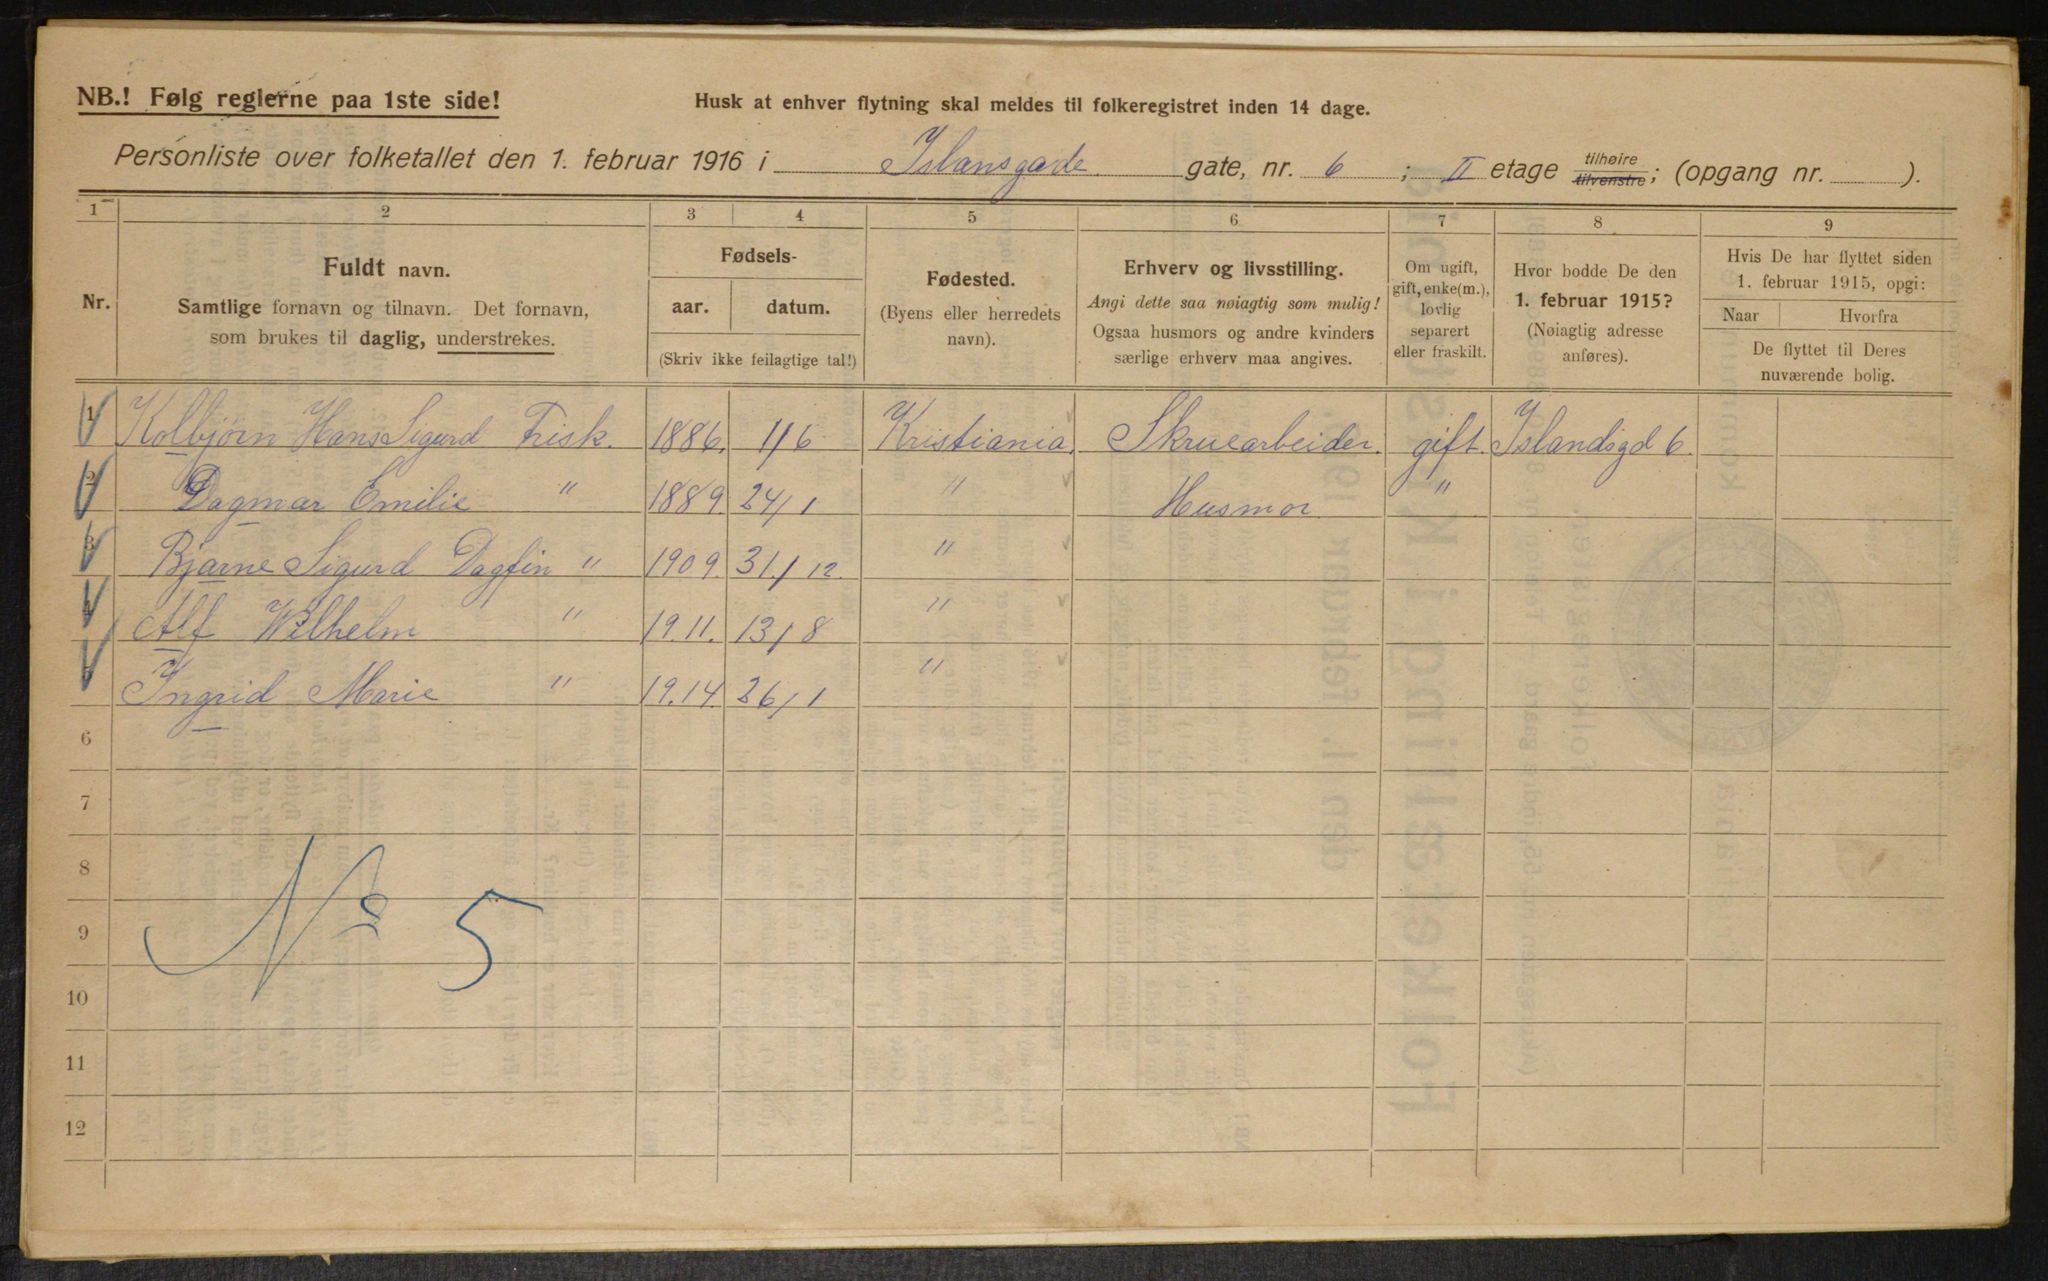 NB.! Følg reglerne paa 1ste side!
Husk at enhver flytning skal meldes til folkeregistret inden 14 dage.
Personliste over folketallet den 1. februar 1916 i Islansgade gate, nr. 6 ; II etage tilhøire tilvenstre; (opgang nr. ).
1 2 3 4 5 6 7 8 9
Nr.
Fuldt navn.
Samtlige fornavn og tilnavn. Det fornavn,
som brukes til daglig, understrekes.
Fødsels-
aar. datum.
(Skriv ikke feilagtige tal!)
Fødested.
(Byens eller herredets
navn).
Erhverv og livsstilling.
Angi dette saa nøiagtig som mulig!
Ogsaa husmors og andre kvinders
særlige erhverv maa angives.
Om ugift,
gift, enke(m.),
lovlig
separert
eller fraskilt.
Hvor bodde De den
1. februar 1915?
(Nøiagtig adresse
anføres).
Hvis De har flyttet siden
1. februar 1915, opgi:
Naar Hvorfra
De flyttet til Deres
nuværende bolig.
1 Kolbjørn Hans Sigurd Frisk. 1886. 1/6 Kristiania. Skruearbeider. gift. Islandsgd 6.
2 Dagmar Emilie " 1889. 24/1 " Husmor "
3 Bjarne Sigurd Dagfin " 1909. 31/12. "
4 Alf Wilhelm " 19.11. 13/8 "
5 Ingrid Marie " 19.14. 26/1 "
6
7
8
9
10
11
12
No 5